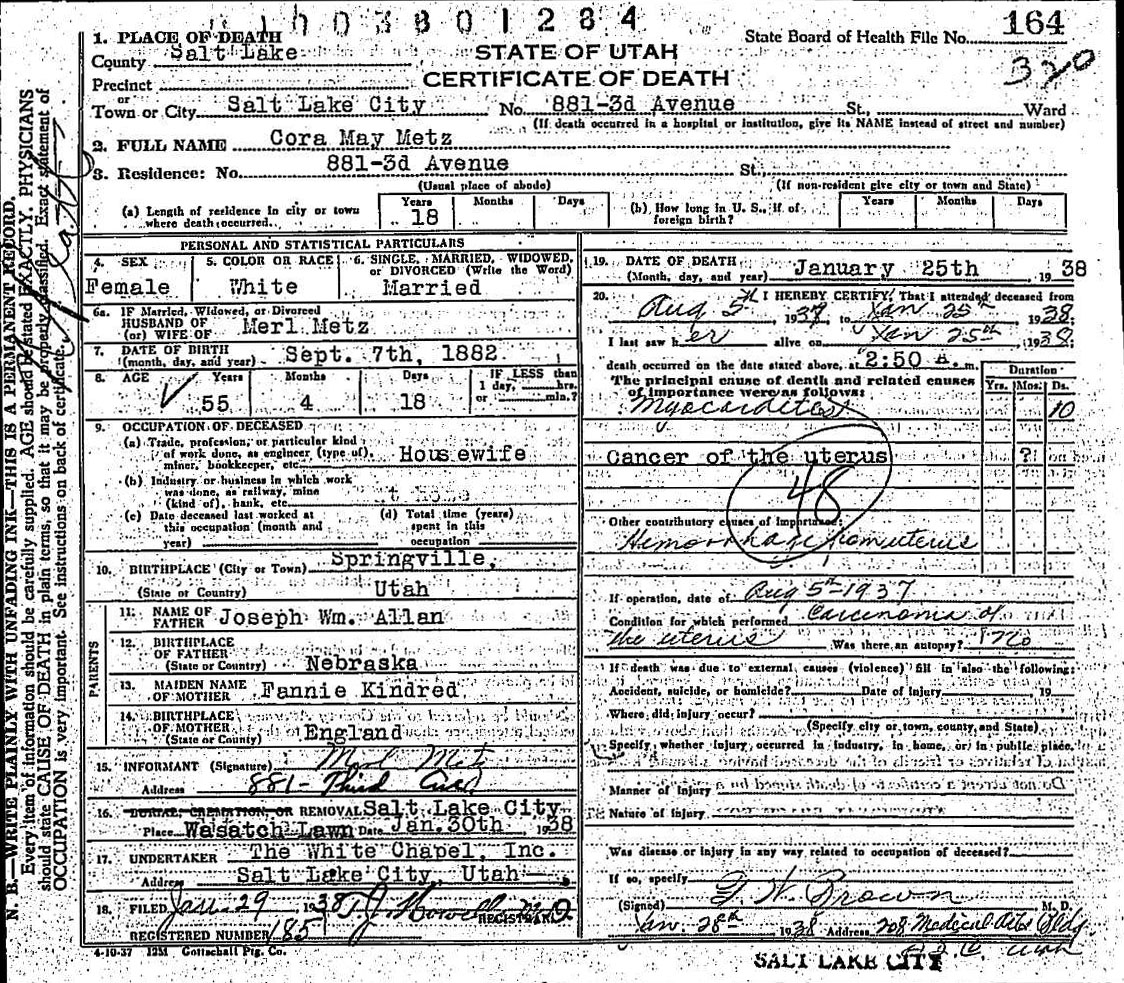 1003801284
1. PLACE OF DEATH
State Board of Health File No. 164
County Salt Lake
STATE OF UTAH
320
Precinct
CERTIFICATE OF DEATH
or
Town or City Salt Lake City No. 881-3d Avenue St., Ward
(If death occurred in a hospital or institution, give its NAME instead of street and number)
2. FULL NAME Cora May Metz
3. Residence: No. 881-3d Avenue St.,
(Usual place of abode) (If non-resident give city or town and State)
(a) Length of residence in city or town where death occurred. Years 18 Months Days
(b) How long in U. S., if of foreign birth? Years Months Days
PERSONAL AND STATISTICAL PARTICULARS
4. SEX Female
5. COLOR OR RACE White
6. SINGLE, MARRIED, WIDOWED, or DIVORCED (Write the Word) Married
6a. IF Married, Widowed, or Divorced
HUSBAND OF Merl Metz
(or) WIFE OF
7. DATE OF BIRTH
(month, day, and year) Sept. 7th, 1882
8. AGE Years 55 Months 4 Days 18
IF LESS than 1 day, hrs. or min.?
9. OCCUPATION OF DECEASED
(a) Trade, profession, or particular kind
of work done, as engineer (type of), Housewife
miner, bookkeeper, etc.
(b) Industry or business in which work
was done, as railway, mine
(kind of), bank, etc. At Home
(c) Date deceased last worked at
this occupation (month and
year)
(d) Total time (years)
spent in this
occupation
10. BIRTHPLACE (City or Town) Springville,
(State or Country) Utah
PARENTS
11. NAME OF
FATHER Joseph Wm. Allan
12. BIRTHPLACE
OF FATHER
(State or Country) Nebraska
13. MAIDEN NAME
OF MOTHER Fannie Kindred
14. BIRTHPLACE
OF MOTHER
(State or Country) England
15. INFORMANT (Signature)
Address 881- Third Ave
16. BURIAL, CREMATION, OR REMOVAL Salt Lake City
Place Wasatch Lawn Date Jan. 30th 1938
17. UNDERTAKER The White Chapel, Inc.
Address Salt Lake City, Utah
18. FILED Jan. 29 1938 T.J. Howells M.D.
REGISTRAR
REGISTERED NUMBER 185
4-10-37 12M Gottschall Ptg. Co.
19. DATE OF DEATH
(Month, day, and year) January 25th 1938
20. I HEREBY CERTIFY, That I attended deceased from
Aug 5th, 1937, to Jan 25th 1938
I last saw her alive on Jan 25th, 1938;
death occurred on the date stated above, at 2:50 A. m.
The principal cause of death and related causes
of importance were as follows:
Duration
Yrs. Mos. Ds.
Myocarditis 10
Cancer of the uterus ?
48
Other contributory causes of importance:
Hemorrhage from uterus
If operation, date of Aug 5th-1937
Condition for which performed Carcinoma of
the uterus Was there an autopsy? no
If death was due to external causes (violence) fill in also the following:
Accident, suicide, or homicide? Date of Injury 19
Where did injury occur?
(Specify city or town, county, and State)
Specify whether injury occurred in industry, in home, or in public place.
Manner of injury
Nature of injury
Was disease or injury in any way related to occupation of deceased?
If so, specify
(Signed) G. W. Brown M. D.
Jan. 28th 1938 Address 208 Medical Arts Bldg
S L C Utah
SALT LAKE CITY
N. B.—WRITE PLAINLY WITH UNFADING INK—THIS IS A PERMANENT RECORD.
Every item of information should be carefully supplied. AGE should be stated EXACTLY. PHYSICIANS
should state CAUSE OF DEATH in plain terms, so that it may be properly classified. Exact statement of
OCCUPATION is very important. See instructions on back of certificate.